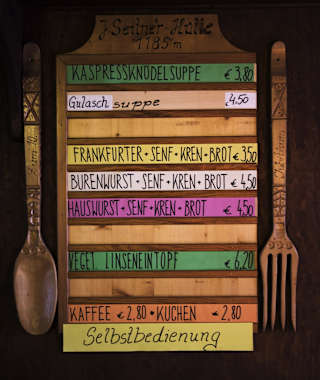 J. Seitner-Hütte
1185m
KASPRESSKNÖDELSUPPE € 3,80
Gulasch suppe 4.50
FRANKFURTER • SENF • KREN • BROT € 3,50
BURENWURST • SENF • KREN • BROT € 4,50
HAUSWURST • SENF • KREN • BROT € 4,50
VEGET. LINSENEINTOPF € 6,20
KAFFEE € 2,80 • KUCHEN € 2,80
Selbstbedienung